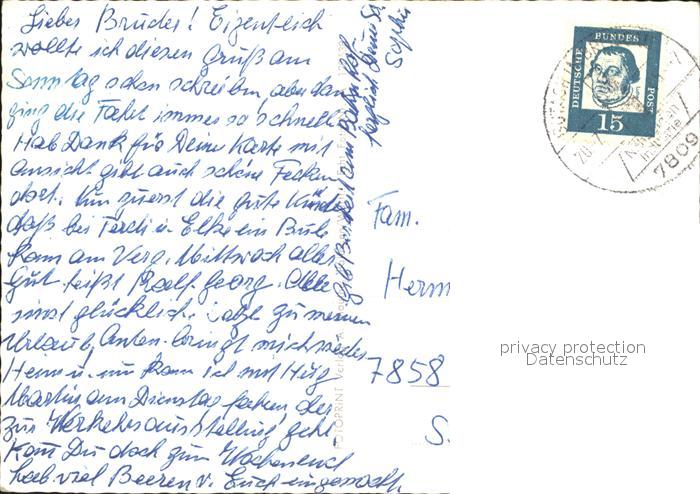 Lieber Bruder! Eigentlich
wollte ich diesen Gruß am
Sonntag schon schreiben, aber dann
ging die Fahrt immer so schnell
Hab Dank für Deine Karte mit
Ansicht gibt auch schöne
dort. Nun zuerst die gute
daß bei Ferdi u. Elke ein Bub
kam am Mittwoch alles
gut heißt Ralf Georg. Alle
sind glücklich. zu meinem
Urlaub, Anton bringt mich wieder
Heim u. nun kann ich mit Hug
Martin am Dienstag fahren der
zur Verkehrsausstellung geht
Kommst Du doch zum Wochenend
hab viel Beeren v. Euch eingemacht
am Bahnhof
herzlich Deine
Sophie
FOTOPRINT
DEUTSCHE BUNDESPOST
15
7809
Fam.
Herm
7858
S.
privacy protection
Datenschutz